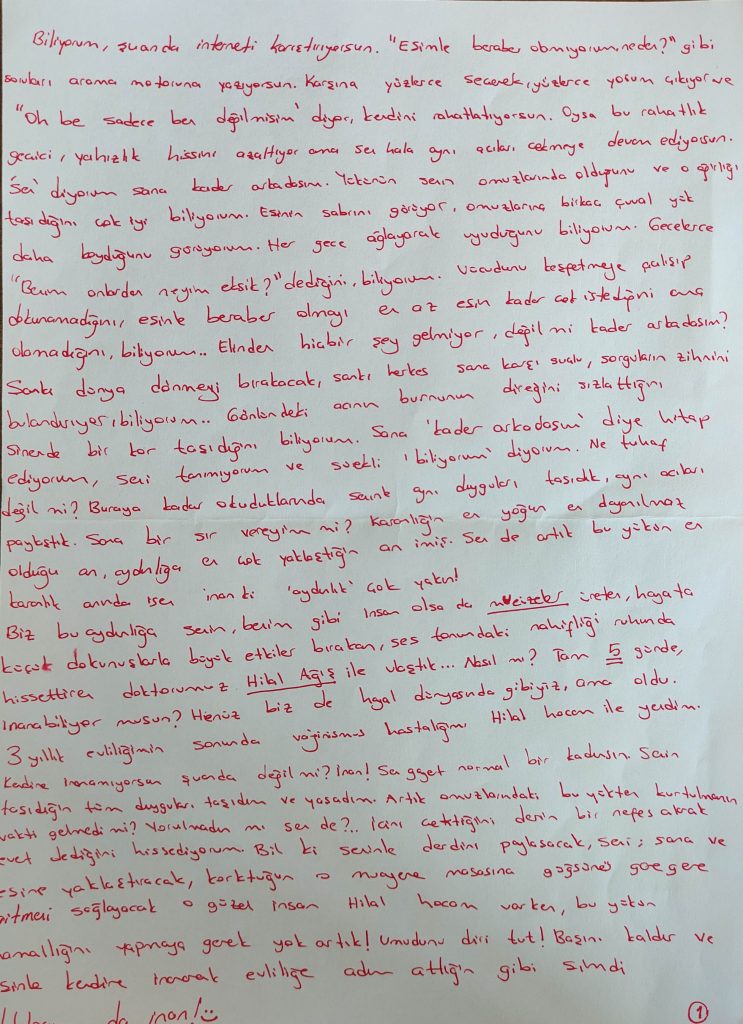 Biliyorum, şuanda interneti karıştırıyorsun. "Eşimle beraber olamıyorum, neden?" gibi
soruları arama motoruna yazıyorsun. Karşına yüzlerce seçenek, yüzlerce yorum çıkıyor ve
"Oh be sadece ben değilmişim" diyor, kendini rahatlatıyorsun. Oysa bu rahatlık
geçici, yalnızlık hissini azaltıyor ama sen hala aynı acıları çekmeye devam ediyorsun.
'Sen' diyorum sana kader arkadaşım. Yükünün senin omuzlarında olduğunu ve o ağırlığı
taşıdığını çok iyi biliyorum. Eşinin sabrını görüyor, omuzlarına birkaç çuval yük
daha koyduğunu görüyorum. Her gece ağlayarak uyuduğunu biliyorum. Gecelerce
"Benim onlardan neyim eksik?" dediğini, biliyorum. Vücudunu keşfetmeye çalışıp
dokunamadığını, eşinle beraber olmayı en az eşin kadar çok istediğini ama
olamadığını, biliyorum.. Elinden hiçbir şey gelmiyor, değil mi kader arkadaşım?
Sanki dünya dönmeyi bırakacak, sanki herkes sana karşı suçlu, sorguların zihnini
bulandırıyor, biliyorum.. Gönlündeki acının burnunun direğini sızlattığını
sinende bir kor taşıdığını biliyorum. Sana 'kader arkadaşım' diye hitap
ediyorum, seni tanımıyorum ve sürekli 'biliyorum' diyorum. Ne tuhaf
değil mi? Buraya kadar okuduklarında seninle aynı duyguları taşıdık, aynı acıları
paylaştık. Sana bir sır vereyim mi? Karanlığın en yoğun en dayanılmaz
olduğu an, aydınlığa en çok yaklaştığın an imiş. Sen de artık bu yükün en
karanlık anında isen inan ki 'aydınlık' çok yakın!
Biz bu aydınlığa senin, benim gibi insan olsa da mucizeler üreten, hayata
küçük dokunuşlarla büyük etkiler bırakan, ses tonundaki nahifliği ruhunda
hissettiren doktorumuz Hilal Ağış ile ulaştık... Nasıl mı? Tam 5 günde,
inanabiliyor musun? Henüz biz de hayal dünyasında gibiyiz, ama oldu.
3 yıllık evliliğimin sonunda vajinismus hastalığını Hilal hocam ile yendim.
Kendine inanamıyorsun şuanda değil mi? İnan! Sen gayet normal bir kadınsın. Senin
taşıdığın tüm duyguları taşıdım ve yaşadım. Artık omuzlarındaki bu yükten kurtulmanın
vakti gelmedi mi? Yorulmadın mı sen de?.. İçini çektiğini derin bir nefes alarak
evet dediğini hissediyorum. Bil ki seninle derdini paylaşacak, seni; sana ve
eşine yaklaştıracak, korktuğun o muayene masasına göğsünü gere gere
gitmeni sağlayacak o güzel insan Hilal hocam varken, bu yükün
hamallığını yapmaya gerek yok artık! Umudunu diri tut! Başını kaldır ve
eşinle kendine inanarak evliliğe adım attığın gibi şimdi
da inan!
1